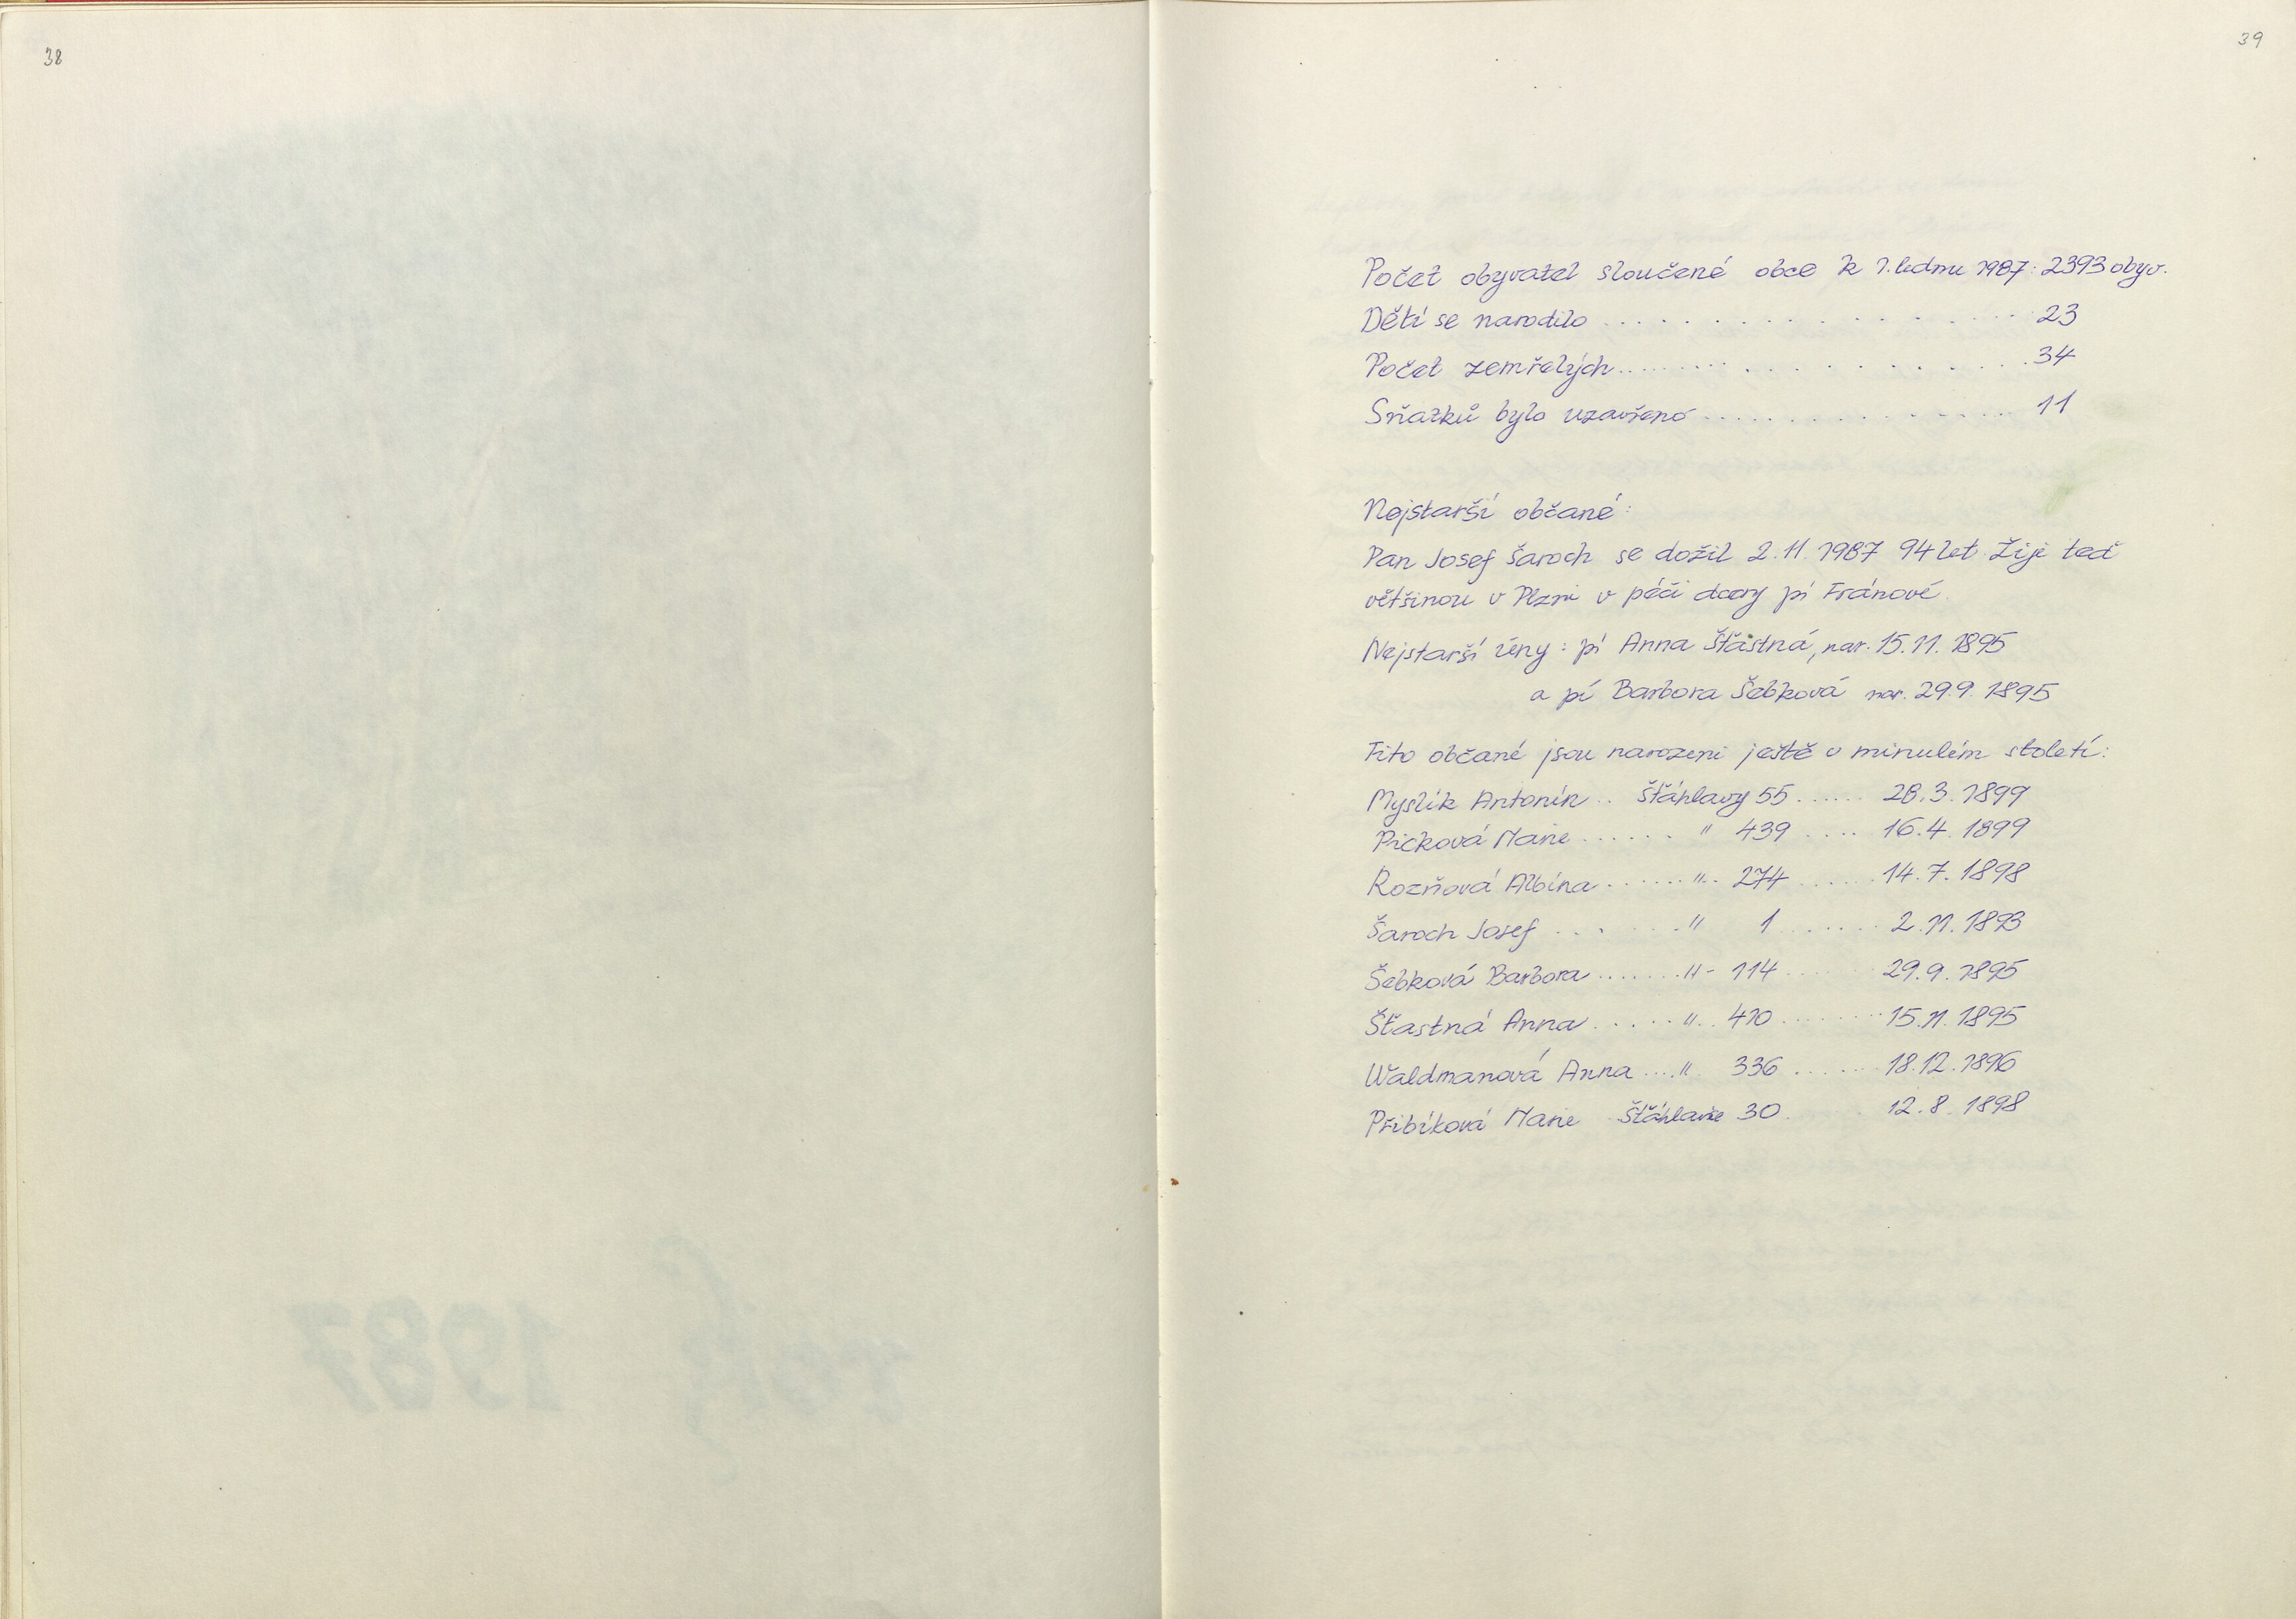 38
39
Počet obyvatel sloučené obce k 1. lednu 1987: 2393 obyv.
Dětí se narodilo . . . . . . . . . . . . . . . 23
Počet zemřelých . . . . . . . . . . . . . . . 34
Sňatků bylo uzavřeno . . . . . . . . . . . . . . . 11
Nejstarší občané:
Pan Josef Šaroch se dožil 2.11.1987 94 let. Žije teď
většinou v Plzni v péči dcery pí Fránové.
Nejstarší ženy: pí Anna Šťastná, nar. 15.11.1895
a pí Barbora Šebková nar. 29.9.1895
Tito občané jsou narozeni ještě v minulém století:
Myslík Antonín .. Šťáhlavy 55 ...... 28.3.1899
Picková Marie ...... " 439 .... 16.4.1899
Rozňová Albína ...... " .. 274 ...... 14.7.1898
Šaroch Josef ...... " 1 ...... 2.11.1893
Šebková Barbora ....... " - 114 ...... 29.9.1895
Šťastná Anna ..... " .. 410 ........ 15.11.1895
Waldmanová Anna .... " 336 ...... 18.12.1896
Přibíková Marie Šťáhlavice 30 ...... 12.8.1898